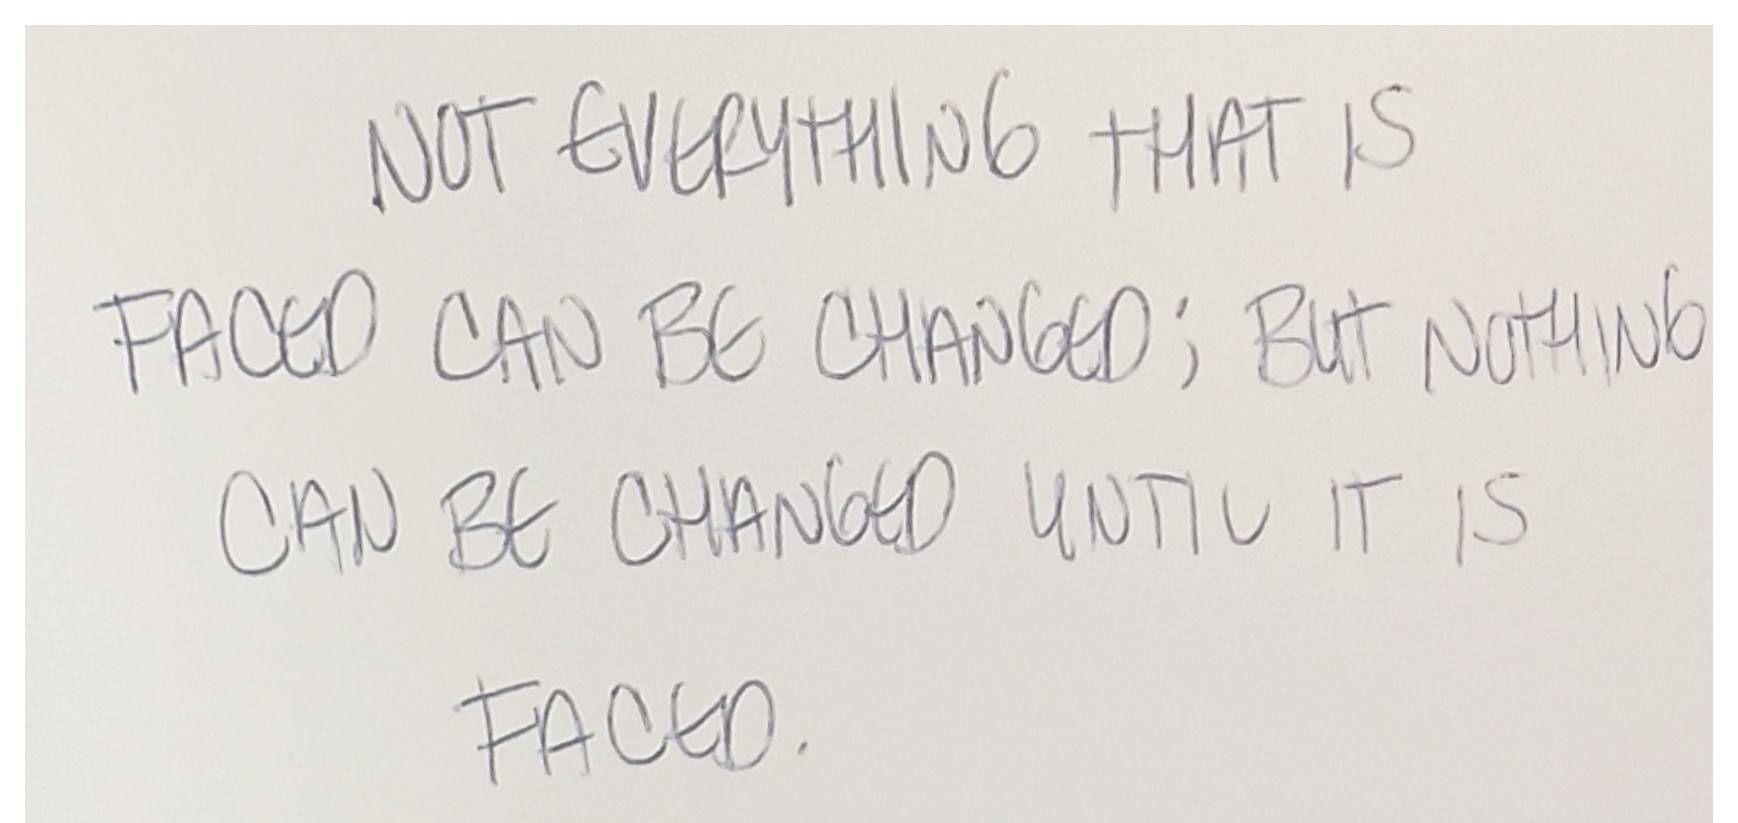 NOT EVERYTHING THAT IS
FACED CAN BE CHANGED; BUT NOTHING
CAN BE CHANGED UNTIL IT IS
FACED.